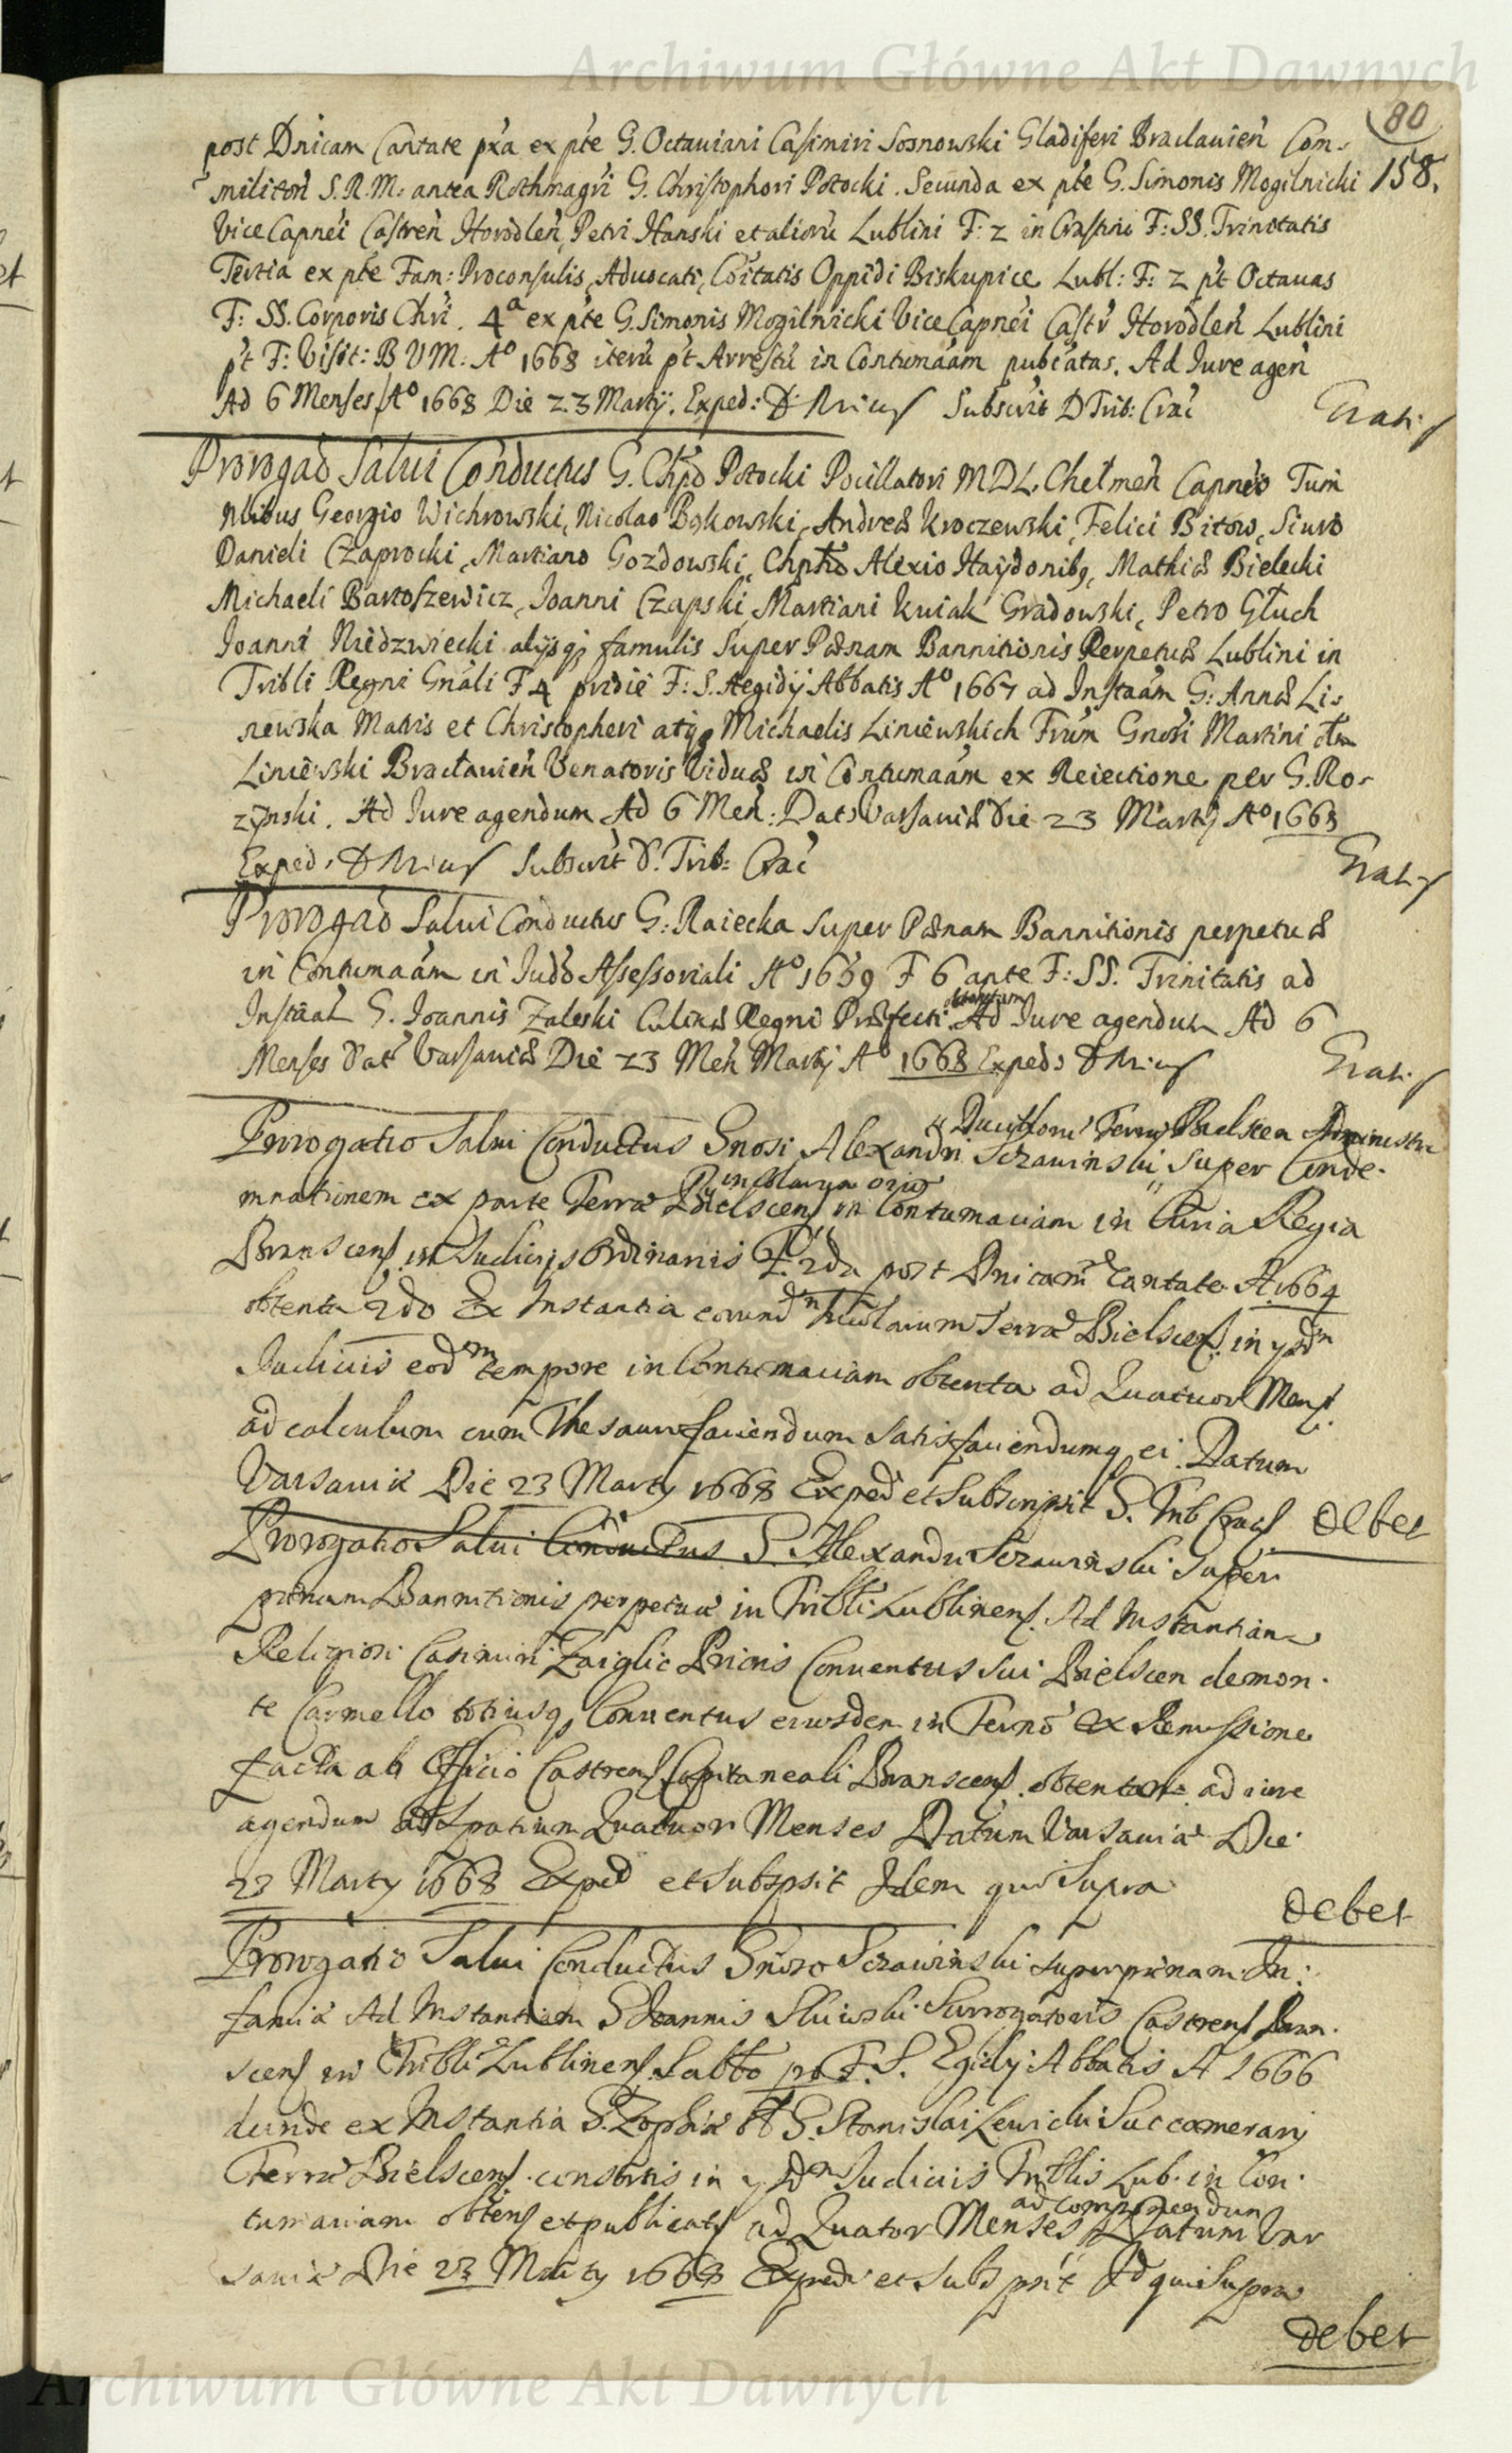 Archiwum Główne Akt Dawnych
80
post Dnicam Cantate pxa ex pte G. Octauiani Casimiri Sosnowski Gladiferi Braclauien Com-
militon S.R.M: antea Rothmagri G. Christophori Potocki. Secunda ex pte G. Simonis Mogilnicki 158.
Vice Capnei Castren Horodlen, Petri Hanski et aliorù Lublini F: 2 in Crastini F: SS. Trinitatis
Tertia ex pte Fam: Proconsulis, Aduocati, Coitatis Oppidi Biskupice Lubl: F: 2 pt Octauas
F: SS. Corporis Chri. 4a ex pte G. Simonis Mogilnicki Vice Capnei Castr Horodlen Lublini
pt F: Visit: B V M: Ao 1668 iterù pt Arrestù in Contumaàm publatas. Ad Jure agen
Ad 6 Menses Ao 1668 Die 23 Martij. Exped: D. Subscrit D Trib: Crac
Gratis
Prorogao Salui Conductus G. Chpo Potocki Pocillatori MDL. Chelmen Capneo Tum
Nlibus Georgio Wichrowski, Nicolao Bąkowski, Andreæ Kroczewski, Felici Bitow, Siuro
Danieli Czaprocki, Martiano Gozdowski, Chpho Alexio Haydonibq, Mathiæ Bielecki
Michaeli Bartoszewicz, Joanni Czapski, Martiani Kuiak Gradowski, Petro Głuch
Joanni Niedzwiecki alijsqj famulis Super Pænam Bannitionis Perpetuæ Lublini in
Tribli Regni Gnali F 4 pridie F: S. Aegidij Abbatis Ao 1667 ad Instaàm G: Annæ Li-
newska Matris et Christopheri atqj Michaelis Liniewskich Frùm Gnosi Martini olim
Liniewski Bracławien Venatoris Viduæ in Contumaàm ex Reiectione per G. Ro-
zynski. Ad Jure agendum Ad 6 Men: Dat: Varsauiæ Die 23 Martij Ao 1668
Exped: D Subscrit D. Trib: Crac
Gratis
Prorogao Salui Conductus G: Raiecka Super Pænam Bannitionis perpetuæ
in Contumaàm in Judo Assessoriali Ao 1659 F 6 ante F: SS. Trinitatis ad
Instaàm G. Joannis Zaleski Culinæ Regni Præfecti obtentam Ad Jure agendum Ad 6
Menses Dat Varsauiæ Die 23 Men Martij Ao 1668 Exped: D
Gratis
Prorogatio Salui Conductus Gnosi Alexandri Szczawinski Super Conde-
mnationem ex parte Terræ Bielscens in Contumaciam in Curia Regia
Branscens in Judicijs Ordinarijs F. 2da post Dnicam Cantate A 1664
obtenta 2do Ex Instantia eorundm Incolarum Terræ Bielscens in ysdm
Judicijs eodm tempore in Contumaciam obtenta ad Quatuor Mens.
ad calculum cum Thesauro faciendum satisfaciendumq ei. Datum
Varsauiæ Die 23 Marty 1668 Exped et Subscripsit S. Trib Crac debet
Prorogatio Salui Conductus G Alexandri Szczawinski Super
pænam Bannitionis perpetuæ in Tribli Lublinens. Ad Instantiam
Religiosi Casimiri Zaiglic Prioris Conuentus sui Bielscen de mon-
te Carmello totiusq Conuentus eiusdem in Termo ex Remissione
facta ab Officio Castrens Capitaneali Branscens obtentam ad iure
agendum ad spatium Quatuor Menses Datum Varsauiæ Die
23 Marty 1668 Exped et Subspsit Idem qui Supra
debet
Prorogatio Salui Conductus Gnoso Szczawinski super pænam In-
famiæ Ad Instantiam G Joannis Surrogatoris Castrens Bran-
scens in Tribli Lublinens Sabbo F. S. Egidij Abbatis A 1666
deinde ex Instantia G. Zophiæ et G. Stanislai Lewicki Succamerarij
Terræ Bielscens in ysdm Judicijs Triblis Lub. in Con-
tumaciam obtens et publicats ad Quator Menses ad componendum Datum Var
sauiæ Die 23 Marty 1668 Exped et Subspsit Id qui Supra
debet
Archiwum Główne Akt Dawnych